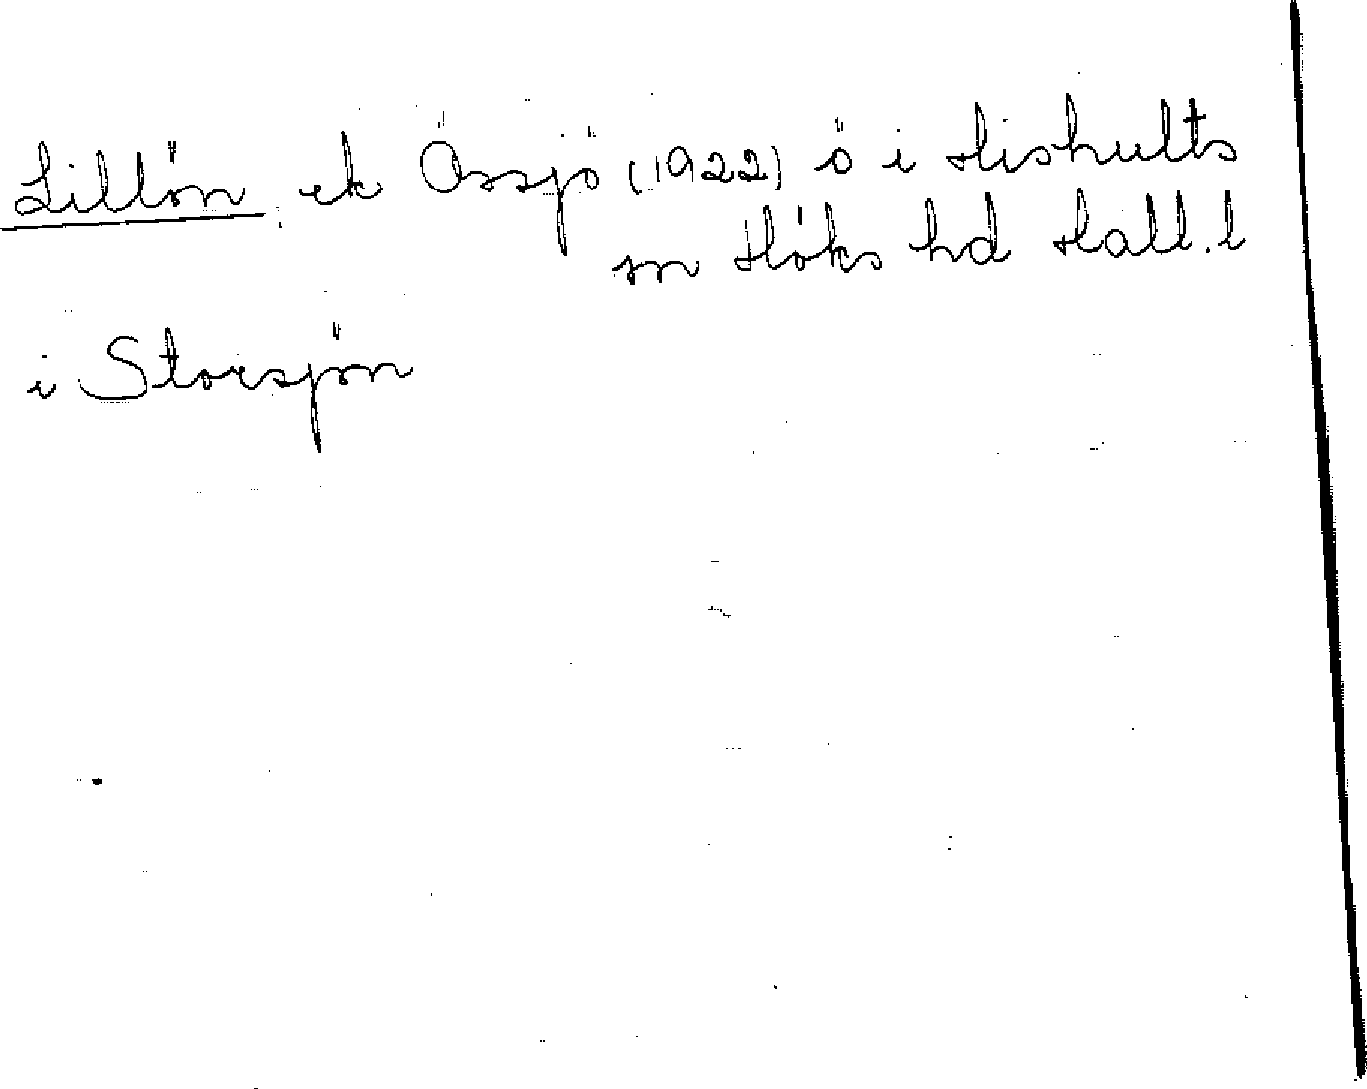 Lillön ek Össjö (1922) ö i Hishults
sn Höks hd Hall. l
i Storsjön